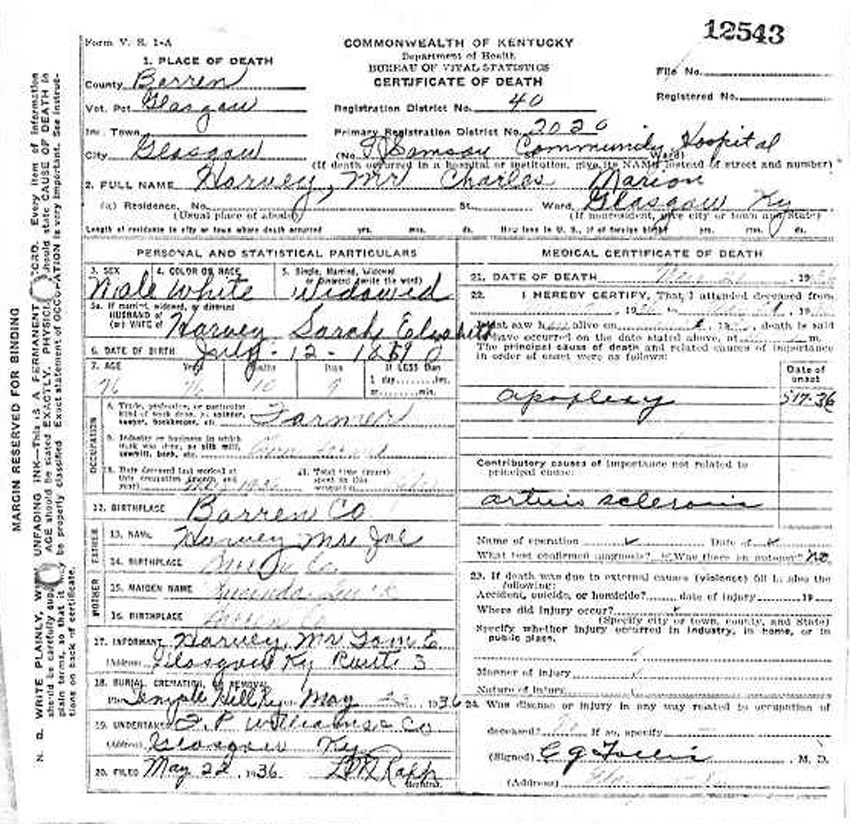 12543
Form V. S. 1-A
COMMONWEALTH OF KENTUCKY
Department of Health
BUREAU OF VITAL STATISTICS
CERTIFICATE OF DEATH
File No.
Registered No.
1. PLACE OF DEATH
County Barren
Vot. Pct Glasgow
Inc. Town
City Glasgow
Registration District No. 40
Primary Registration District No. 2020
(No. T J Samson Community Hospital St. Ward)
(If death occurred in a hospital or institution, give its NAME instead of street and number)
2. FULL NAME Harvey, Mr Charles Marion
(a) Residence. No. St. Ward, Glasgow Ky
(Usual place of abode) (If nonresident, give city or town and State)
Length of residence in city or town where death occurred yrs. mos. ds. How long in U. S., if of foreign birth? yrs. mos. ds.
PERSONAL AND STATISTICAL PARTICULARS
3. SEX 4. COLOR OR RACE 5. Single, Married, Widowed or Divorced (write the word)
Male White Widowed
5a. If married, widowed, or divorced
HUSBAND of
(or) WIFE of Harvey Sarah Elizabeth
6. DATE OF BIRTH July-12-1859
7. AGE Years Months Days If LESS than
1 day hrs.
or min.
76 10 9
OCCUPATION
8. Trade, profession, or particular kind of work done, as spinner, sawyer, bookkeeper, etc. Farmer
9. Industry or business in which work was done, as silk mill, sawmill, bank, etc.
10. Date deceased last worked at this occupation (month and year)
11. Total time (years) spent in this occupation
12. BIRTHPLACE Barren Co
FATHER
13. NAME Harvey Mr Joe
14. BIRTHPLACE Co
MOTHER
15. MAIDEN NAME
16. BIRTHPLACE
17. INFORMANT Harvey, Mr Tom E
(Address) Glasgow Ky Route 3
18. BURIAL, CREMATION, OR REMOVAL
Place Temple Hill Ky May 1936
19. UNDERTAKER Williams & Co
(Address) Glasgow Ky
20. FILED May 22, 1936 Rapp
MEDICAL CERTIFICATE OF DEATH
21. DATE OF DEATH May 21, 1936
22. I HEREBY CERTIFY, That I attended deceased from
I last saw him alive on death is said
to have occurred on the date stated above, at m.
The principal cause of death and related causes of importance in order of onset were as follows:
Date of onset
apoplexy 5-17-36
Contributory causes of importance not related to principal cause:
arterio sclerosis
Name of operation Date of
What test confirmed diagnosis? Was there an autopsy? No
23. If death was due to external causes (violence) fill in also the following:
Accident, suicide, or homicide? date of injury 19
Where did injury occur?
(Specify city or town, county, and State)
Specify whether injury occurred in industry, in home, or in public place.
Manner of injury
Nature of injury
24. Was disease or injury in any way related to occupation of
deceased? No If so, specify
(Signed) C G Follis M. D.
(Address)
MARGIN RESERVED FOR BINDING
N. B. WRITE PLAINLY, UNFADING INK—This IS A PERMANENT RECORD. Every item of information
should be carefully AGE should be stated EXACTLY. PHYSICIANS should state CAUSE OF DEATH in
plain terms, so that it may be properly classified. Exact statement of OCCUPATION is very important. See instruc-
tions on back of certificate.